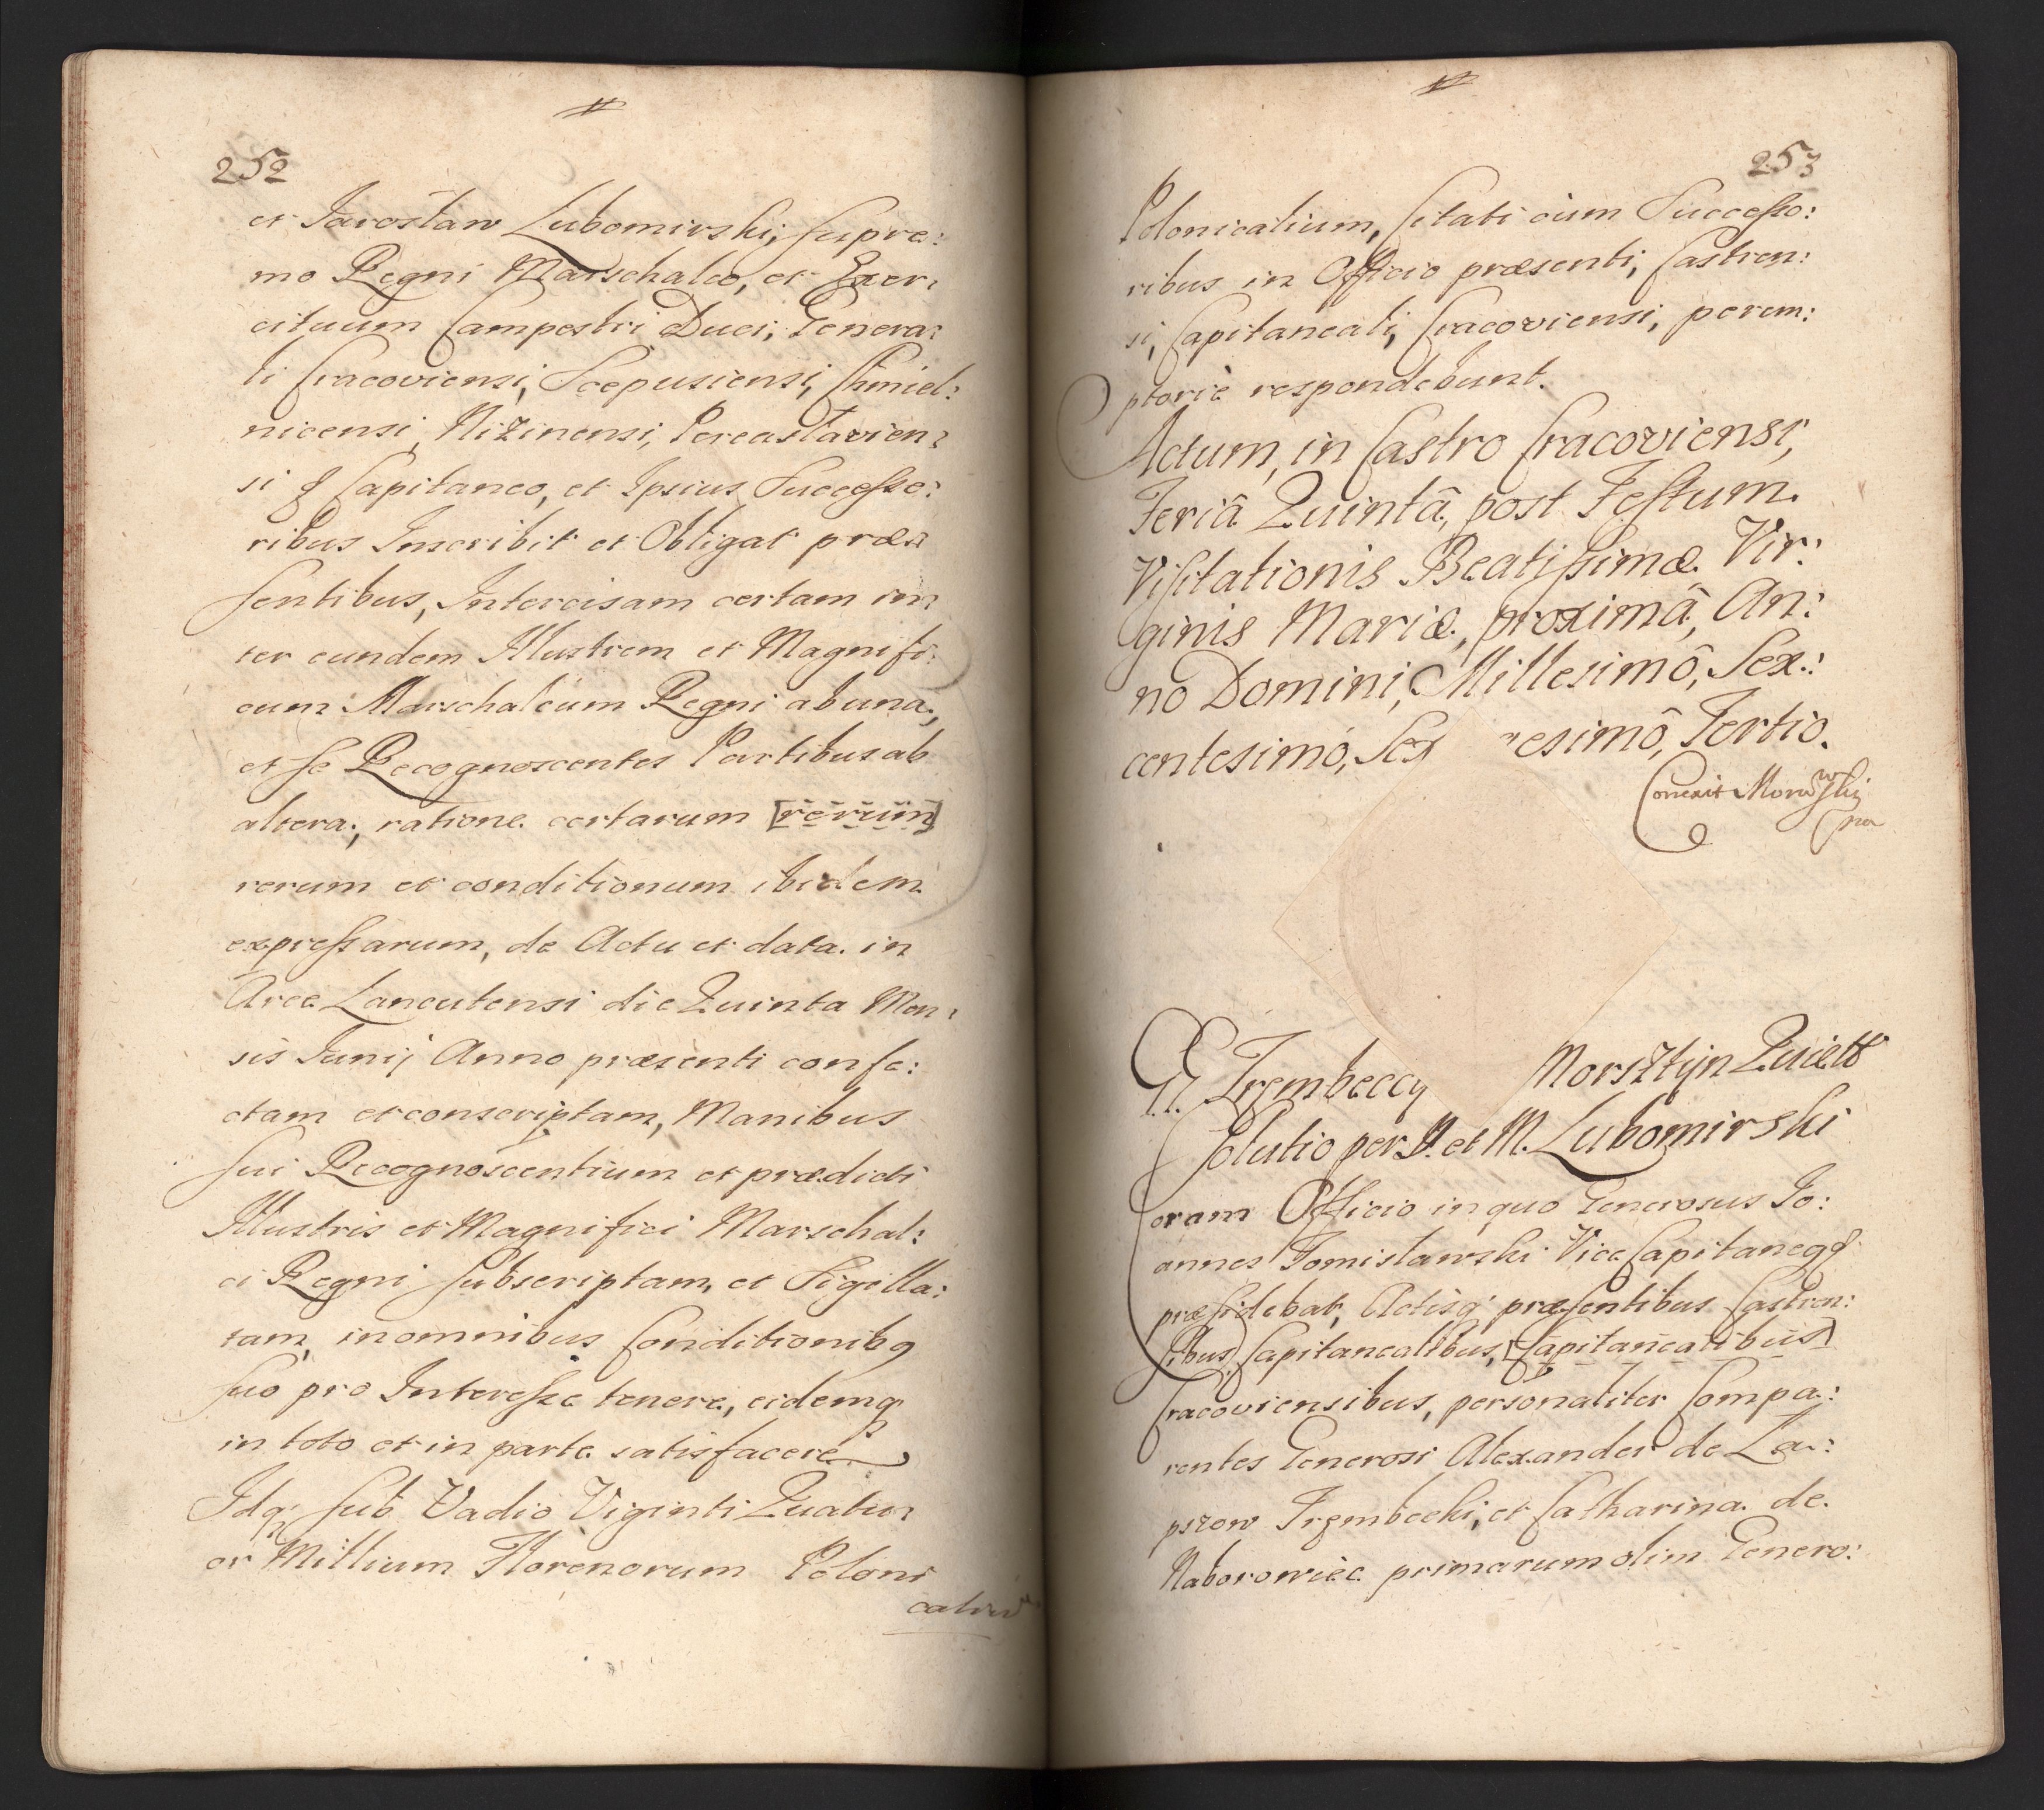 252
et Jarosław Lubomirski, supre:
mo Regni Marschalco, et Exer:
cituum Campestri Duci; Genera:
li Cracoviensi, Scepusiensi, Chmiel:
nicensi, Niżinensi, Pereasłavien:
si q Capitaneo, et Ipsius Successo:
ribus Inscribit et Obligat præ:
sentibus, Intercisam certam in:
ter eundem Illustrem et Magnifi:
cum Marschalcum Regni ab una,
et se Recognoscentes Partibus ab
altera, ratione certarum [rerum]
rerum et conditionum ibidem
expressarum, de Actu et data in
Arce Lancutensi die Quinta Men:
sis Junij Anno præsenti confe:
ctam et conscriptam, Manibus
sui Recognoscentium et prædicti
Illustris et Magnifici Marschal:
ci Regni subscriptam, et Sigilla:
tam, in omnibus Conditionibq
suo pro Interesse tenere, eidemq
in toto et in parte satisfacere
Idq; sub Vadio Viginti Quatu:
or Millium Florenorum Poloni
calium

253
Polonicalium, Citati cum Successo:
ribus in Officio præsenti, Castren:
si, Capitaneali, Cracoviensi, perem:
ptoriè respondebunt.
Actum, in Castro Cracoviensi,
Feriâ Quintâ, post Festum
Visitationis Beatissimæ Vir:
ginis Mariæ, proximâ, An:
no Domini, Millesimô, Sex:
centesimô, Sex esimô, Tertio.
Correxit

GG. Trembeccy Morsztyn Quiett
solutio per I. et M. Lubomirski
Coram Officio in quo Generosus Jo:
annes Tomisławski ViceCapitaneqq
præsidebat, Actisq præsentibus Castren:
sibus, Capitanealibus, [Capitanealibus]
Cracoviensibus, personaliter Compa:
rentes Generosi Alexander de Ła:
pszow Trembecki, et Catharina de
Naborowiec primarum olim Genero: